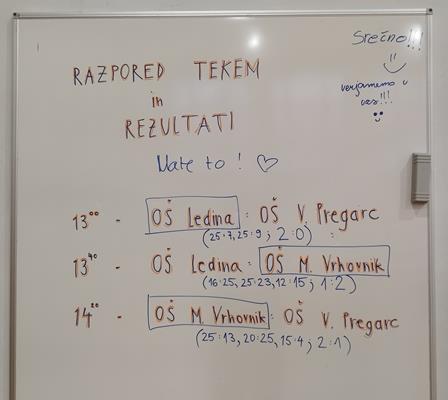 Srečno!!!
verjamemo v
vas!!!
RAZPORED TEKEM
in
REZULTATI
Date to!
13⁰⁰ - OŠ Ledina : OŠ V. Pregarc
(25:7, 25:9 ; 2:0)
13⁴⁰ - OŠ Ledina : OŠ M. Vrhovnik
(16:25, 25:23, 12:15 ; 1:2)
14²⁰ - OŠ M. Vrhovnik : OŠ V. Pregarc
(25:13, 20:25, 15:4 ; 2:1)